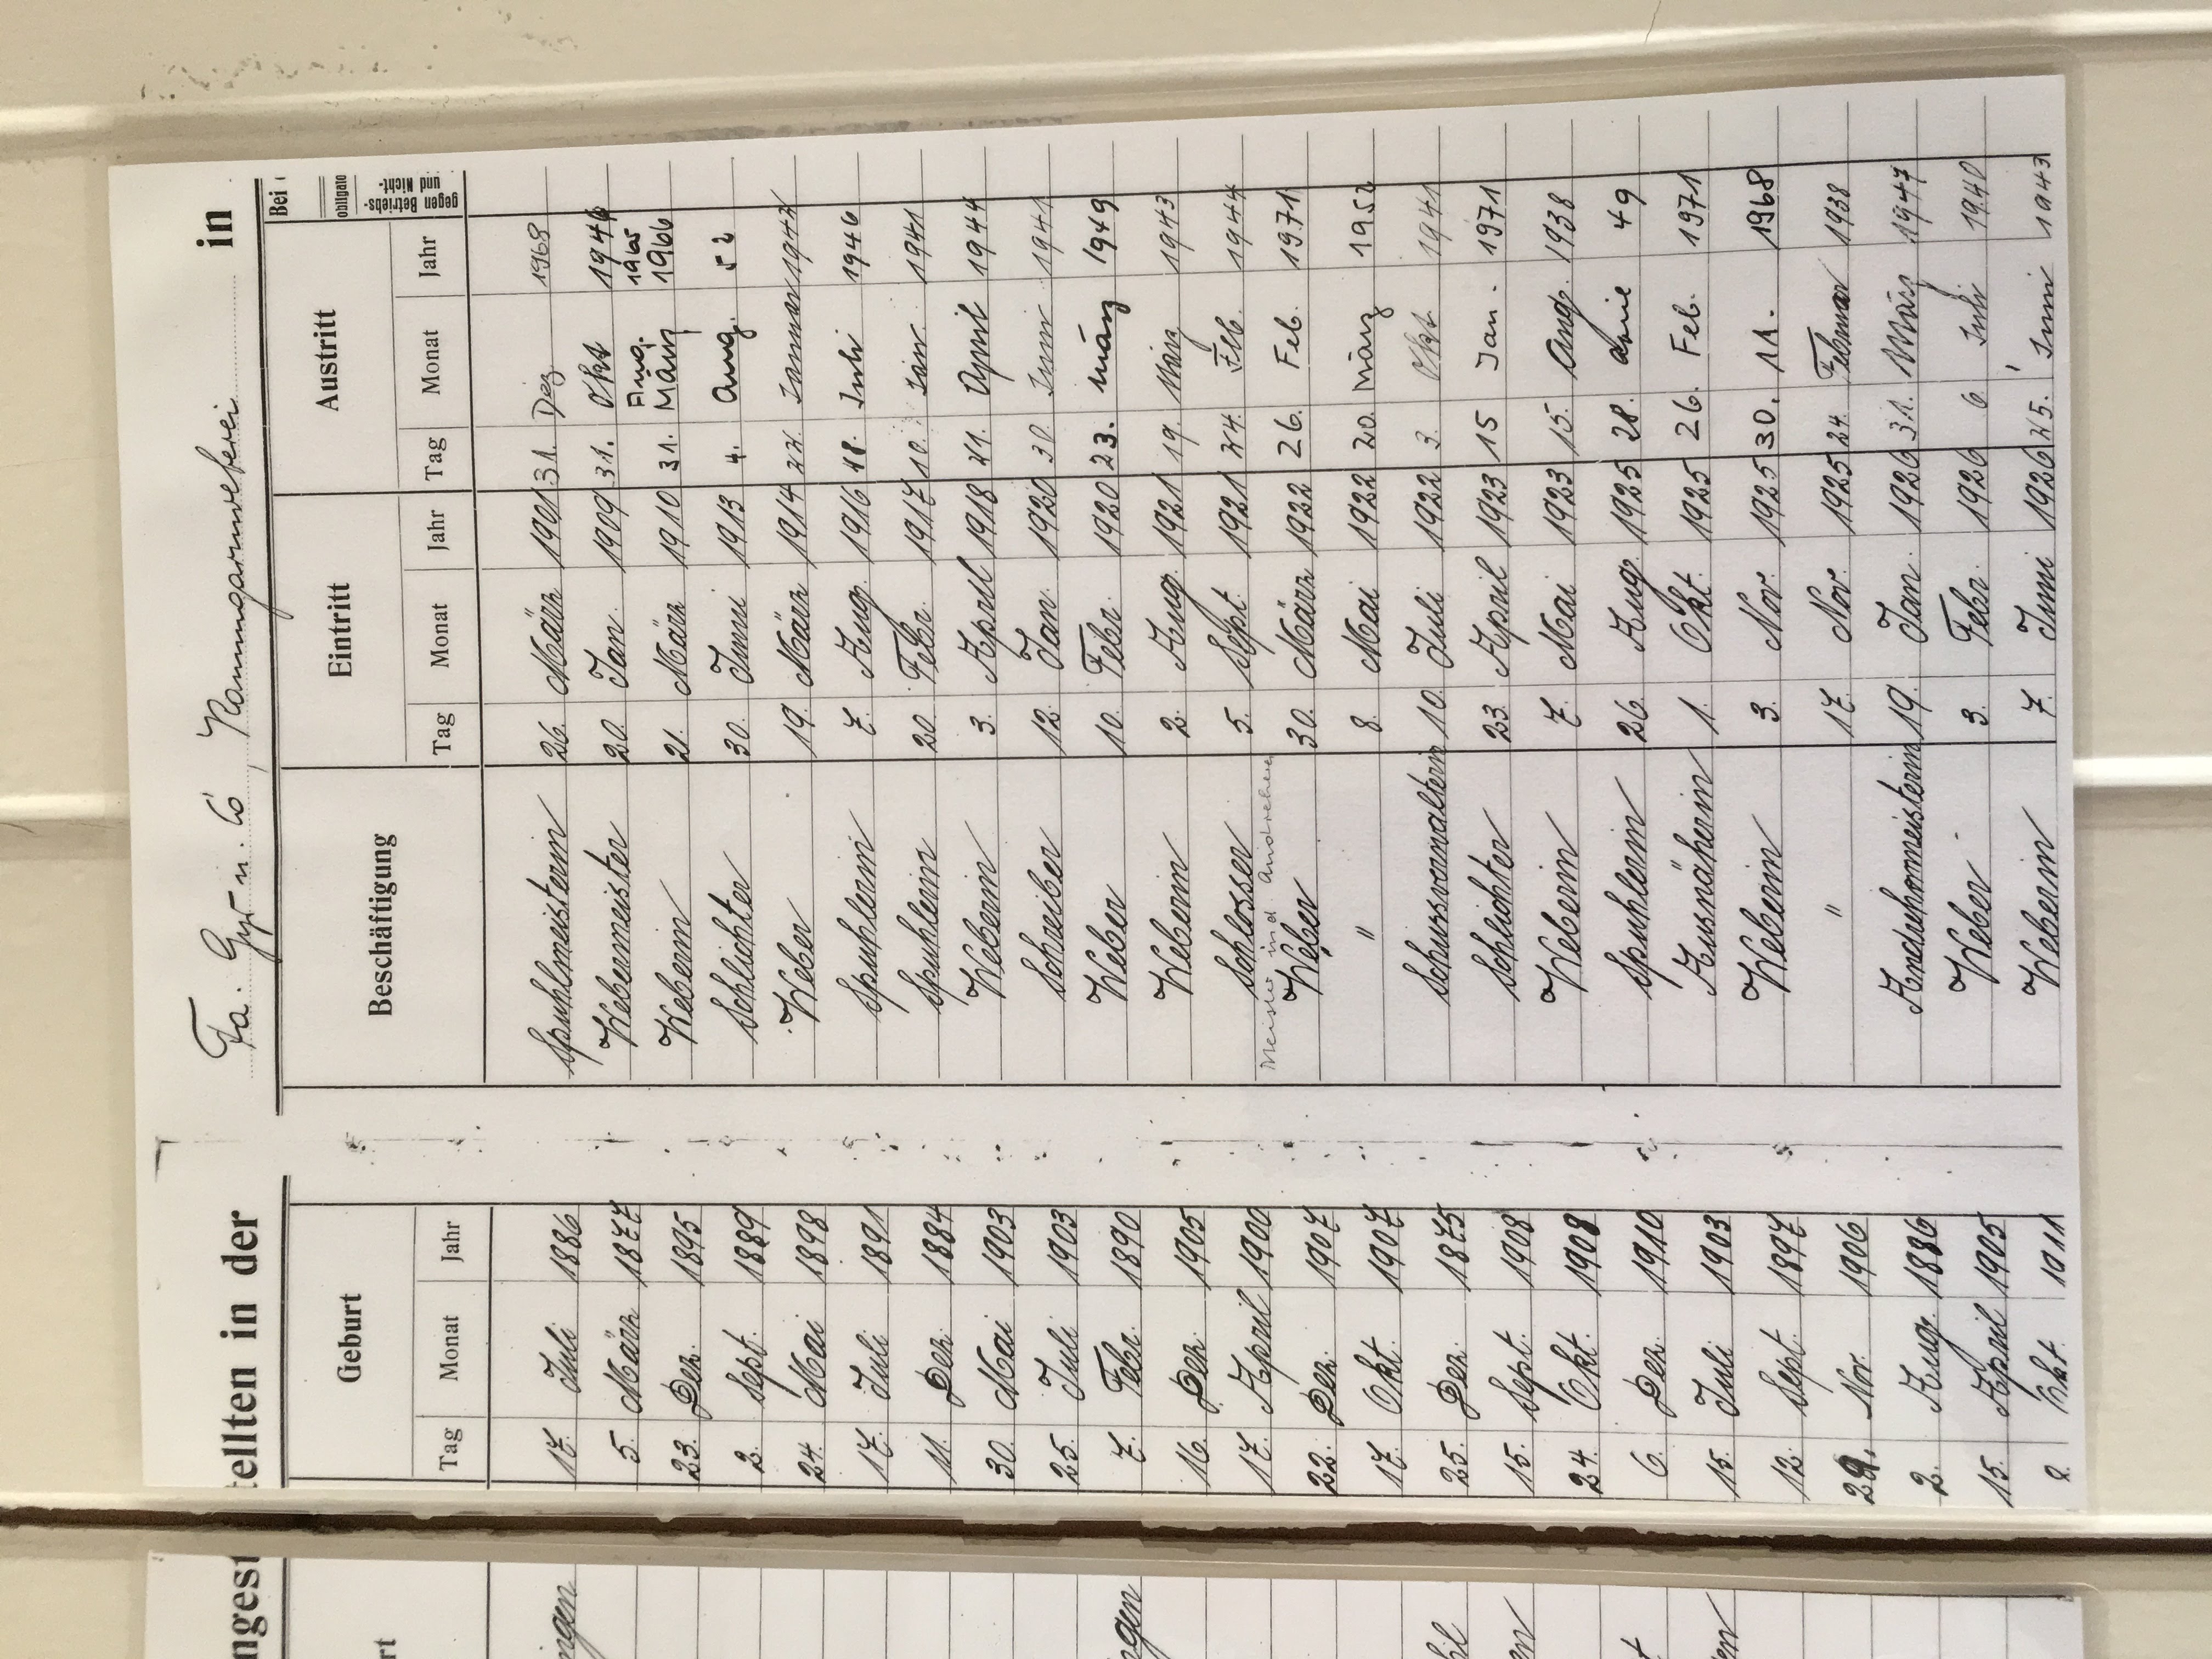 tellten in der Fa. Gyr u. Co, Kammgarnweberei in
Geburt Beschäftigung Eintritt Austritt Bei
obligato
gegen Betriebs-
und Nicht-
Tag Monat Jahr Tag Monat Jahr Tag Monat Jahr
17. Juli 1886 Spuhlmeisterin 26. März 1901 31. Dez 1968
5. März 1877 Webermeister 20. Jan. 1909 31. Okt 1946
Aug. 1965
23. Dez. 1895 Weberin 21. März 1910 31. März 1966
2. Sept. 1889 Schlichter 30. Juni 1913 4. Aug. 52
24. Mai 1898 Weber 19. März 1914 Januar
17. Juli 1891 Spuhlerin 7. Aug. 1916 Juli 1946
11. Dez. 1884 Spuhlerin 20. Febr. 1917 10. 1941
30. Mai 1903 Weberin 3. April 1918 21. April 1944
25. Juli 1903 Schreiber 12. Jan. 1920 30. Juni 1941
7. Febr. 1890 Weber 10. Febr. 1920 23. März 1949
16. Dez. 1905 Weberin 2. Aug. 1921 19. März 1943
17. April 1900 Schlosser 5. Sept. 1921 24. Feb. 1944
Meister in d. Andreherei
22. Dez. 1907 Weber 30. März 1922 26. Feb. 1971
17. Okt. 1907 " 8. Mai 1922 20. März 1952
25. Dez. 1875 Schussverwalterin 10. Juli 1922 3. Okt 1941
15. Sept. 1908 Schlichter 23. April 1923 15 Jan. 1971
24. Okt. 1908 Weberin 7. Mai 1923 15. Aug. 1938
6. Dez. 1910 Spuhlerin 26. Aug. 1925 28. 49
15. Juli 1903 Ausnäherin 1. Okt. 1925 26. Feb. 1971
12. Sept. 1897 Weberin 3. Nov. 1925 30. 11. 1968
29. Nov. 1906 " 17. Nov. 1925 24. Februar 1938
2. Aug. 1886 Andrehermeisterin 19. Jan. 1926 31. März 1947
15. April 1905 Weber 3. Febr. 1926 6 Juli 1940
2. Okt. 1911 Weberin 7. Juni 1926 25. Juni 1943
ngest
rt
ingen
ngen